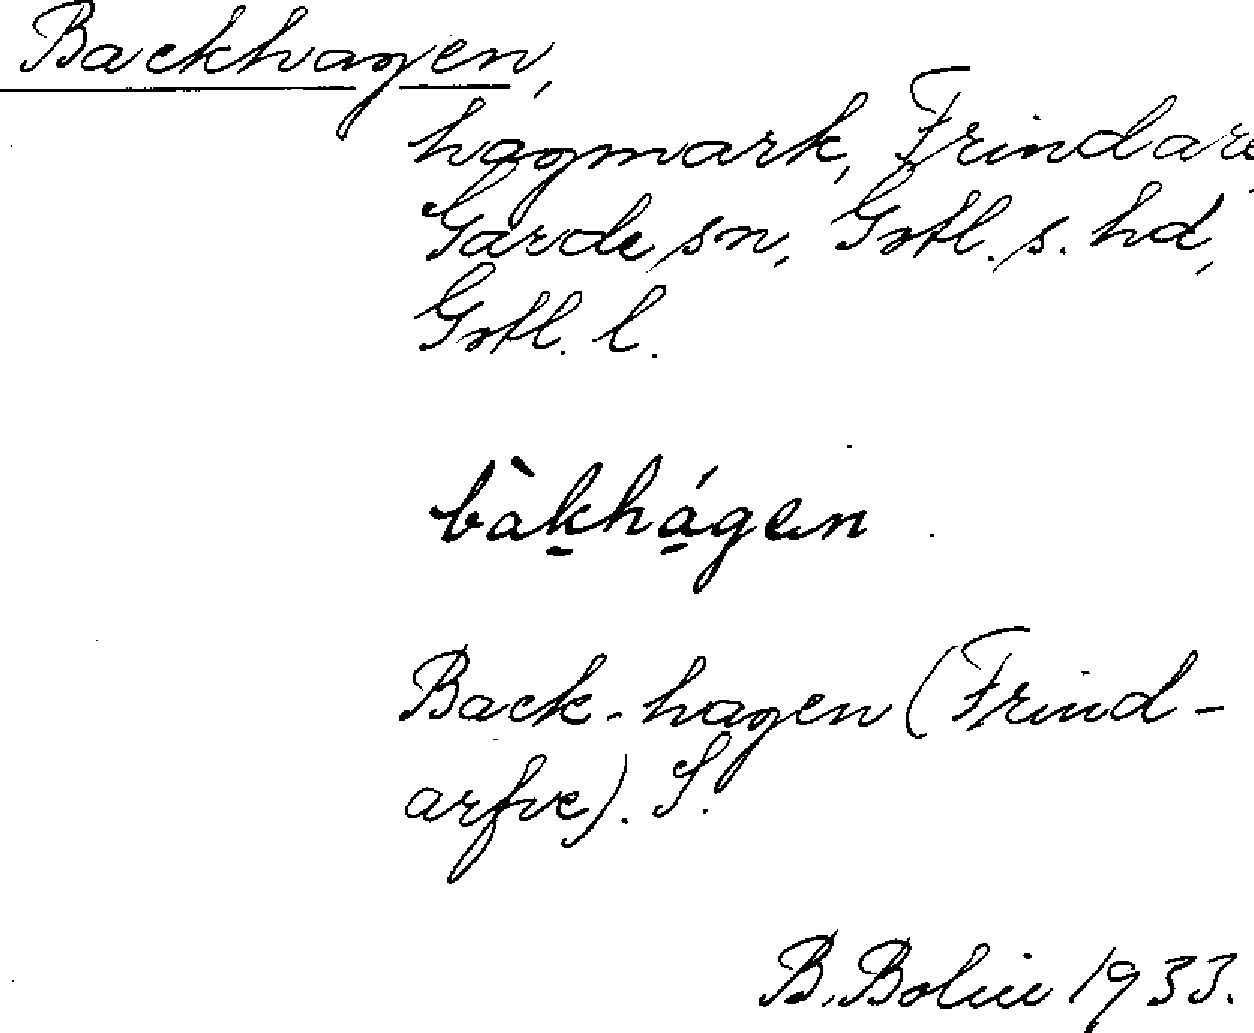 Backhagen,
hagmark, Frindare
Garde sn, Gotl. s. hd,
Gotl. l.
bàkhágen
Back-hagen (Frind-
arfve). S.
B. Bolin 1933.